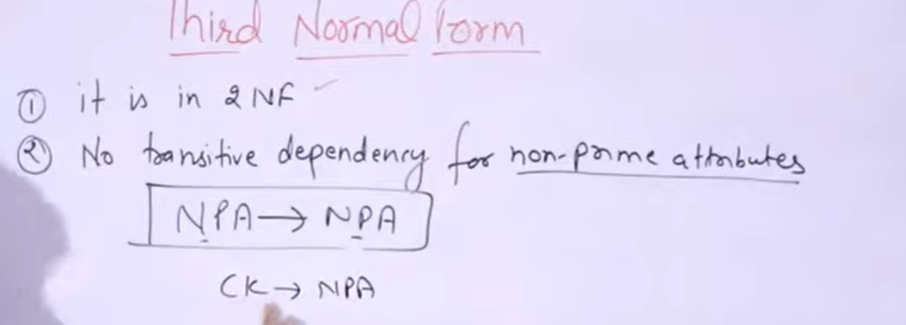 Third Normal Form
① it is in 2NF
② No transitive dependency for non-prime attributes
NPA → NPA
CK → NPA